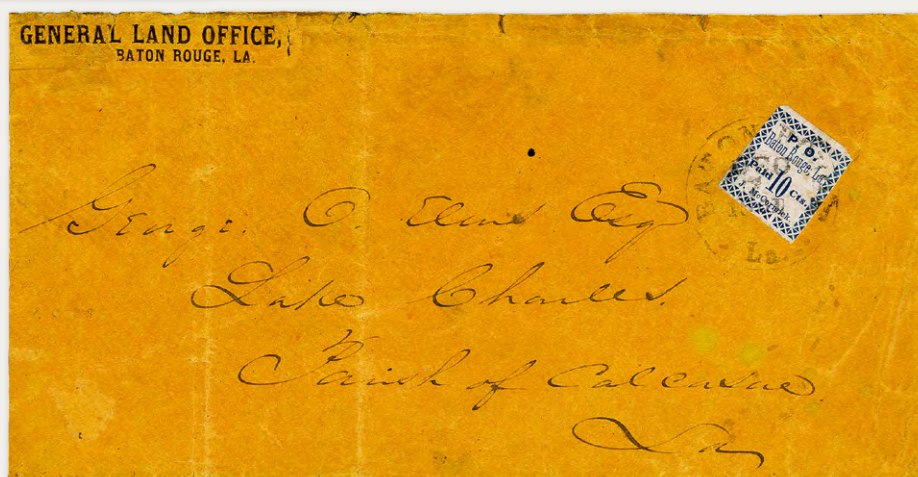 GENERAL LAND OFFICE,
BATON ROUGE, LA.
P. O.
Baton Rouge, La.
Paid 10 Cts.
J. McCormick.
BATON
La.
George. O. Elms Esq
Lake Charles.
Parish of Calcasue
La